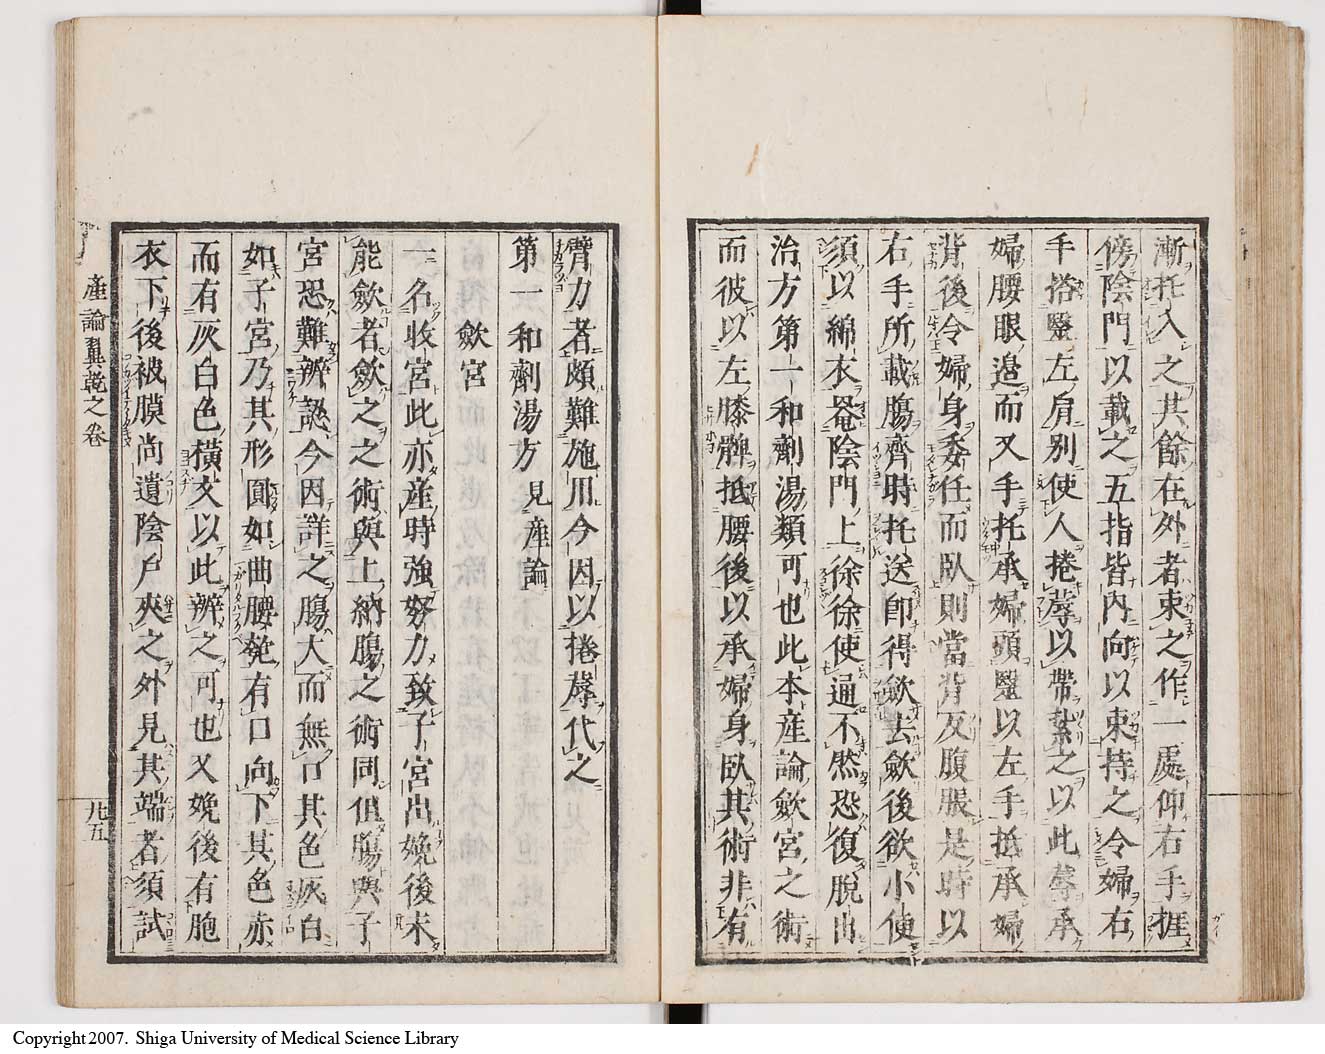 漸托入之其餘在外者束之作一處仰右手捱
傍陰門以載之五指皆內向以束持之令婦右
手搭毉左肩別使人捲䕮以帶紮之以此䕮承
婦腰眼邉而又手托承婦頭毉以左手抵承婦
背後令婦身委任而臥則當背反腹脹是時以
右手所載膓齊時托送卽得斂去斂後欲小使
須以綿衣罨陰門上徐徐使通不然恐復脫出
治方第一和劑湯類可也此本產論斂宮之術
而彼以左膝髀抵腰後以承婦身臥其術非有
臂力者頗難施用今因以捲䕮代之
第一和劑湯方 見產論
斂宮
一名收宮此亦產時強努力致子宮出娩後未
能斂者斂之之術與上納膓之術同但膓與子
宮恐難辨認今因詳之膓大而無口其色灰白
如子宮乃其形圓如曲腰㼜有口向下其色赤
而有灰白色橫文以此辨之可也又娩後有胞
衣下後被膜尚遺陰戶夾之外見其端者須試
產論翼乾之卷
廿五
Copyright 2007. Shiga University of Medical Science Library